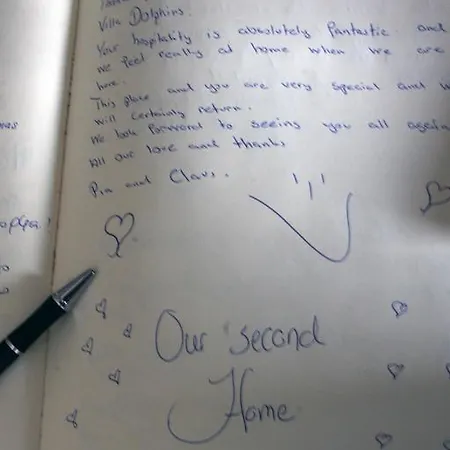 Villa Dolphins.
Your hospitality is absolutely fantastic and
we feel really at home when we are
here.
This place and you are very special and w
will certainly return.
We look forward to seeing you all again
All our love and thanks
Pia and Claus.
Our second
Home